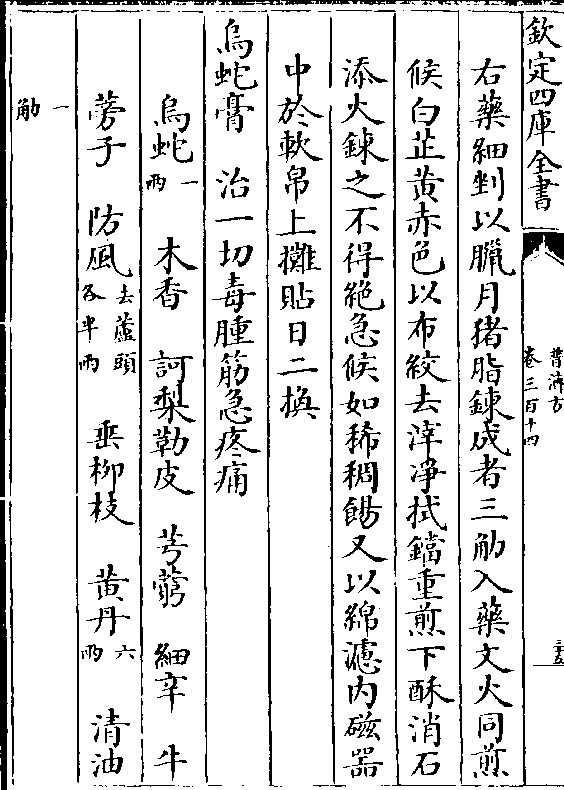 欽定四庫全書
普濟方
卷三百十四
三五
右藥細剉以臘月猪脂鍊成者三觔入藥文火同煎
候白芷黄赤色以布絞去滓凈拭鐺重煎下酥消石
添火鍊之不得絶急候如稀稠餳又以綿濾内磁器
中於軟帛上攤貼日二換
烏蛇膏 治一切毒腫筋急疼痛
烏蛇一兩 木香 訶梨勒皮 芎藭 細辛 牛
蒡子 防風去蘆頭各半兩 垂柳枝 黄丹六兩 清油
一觔